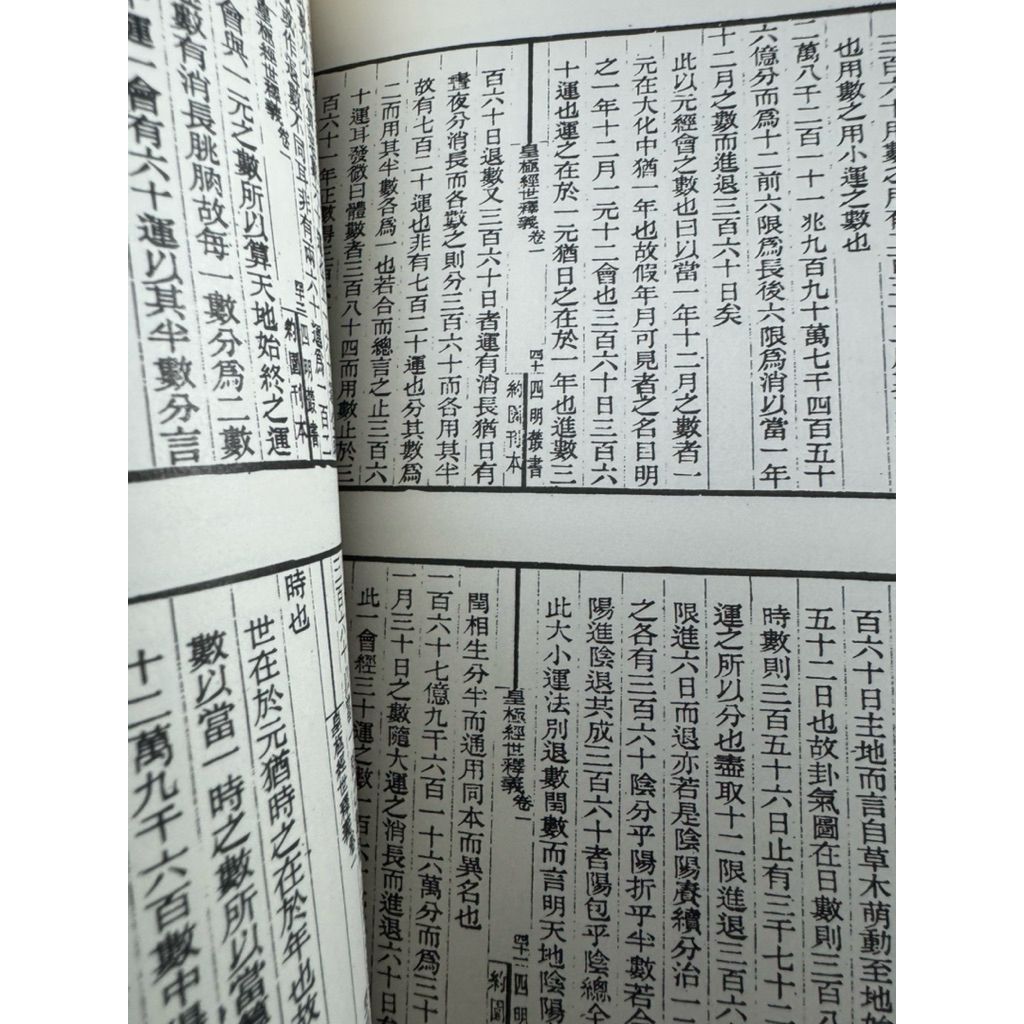 也用數之用小運之數也
二萬八千二百一十一兆九百九十萬七千四百五十
六億分而為十二前六限為長後六限為消以當一年
十二月之數而進退三百六十日矣
此以元經會之數也曰以當一年十二月之數者一
元在大化中猶一年也故假年月可見者之名曰明
之一年十二月一元十二會也三百六十日三百六
十運也運之在於一元猶日之在於一年也進數三
皇極經世釋義 卷一
四十 四明叢書
約園刊本
百六十日退數又三百六十日者運有消長猶日有
晝夜分消長而各數之則分三百六十而各用其半
故有七百二十運也非有七百二十運也分其數為
二而用其半數各為一也若合而總言之止三百六
十運耳發微曰體數者三百八十四而用數止於三
皇極經世釋義 卷一
四明叢書
約園刊本
會與一元之數所以算天地始終之運
數有消長朓朒故每一數分為二數
運一會有六十運以其半數分言
百六十日主地而言自草木萌動至地始
五十二日也故卦氣圖在日數則三百八
時數則三百五十六日止有三千七十二
運之所以分也盡取十二限進退三百六
限進六日而退亦若是陰陽賡續分治一
之各有三百六十陰分乎陽折乎半數若合
陽進陰退共成三百六十者陽包乎陰總全
此大小運法別退數閏數而言明天地陰陽
皇極經世釋義 卷一
四十一 四明
約園
閏相生分半而通用同本而異名也
一百六十七億九千六百一十六萬分而為三十
一月三十日之數隨大運之消長而進退六十日
此一會經三十運之數一百六
皇極經世釋義
時也
世在於元猶時之在於年也故
數以當一時之數所以當
十二萬九千六百數中